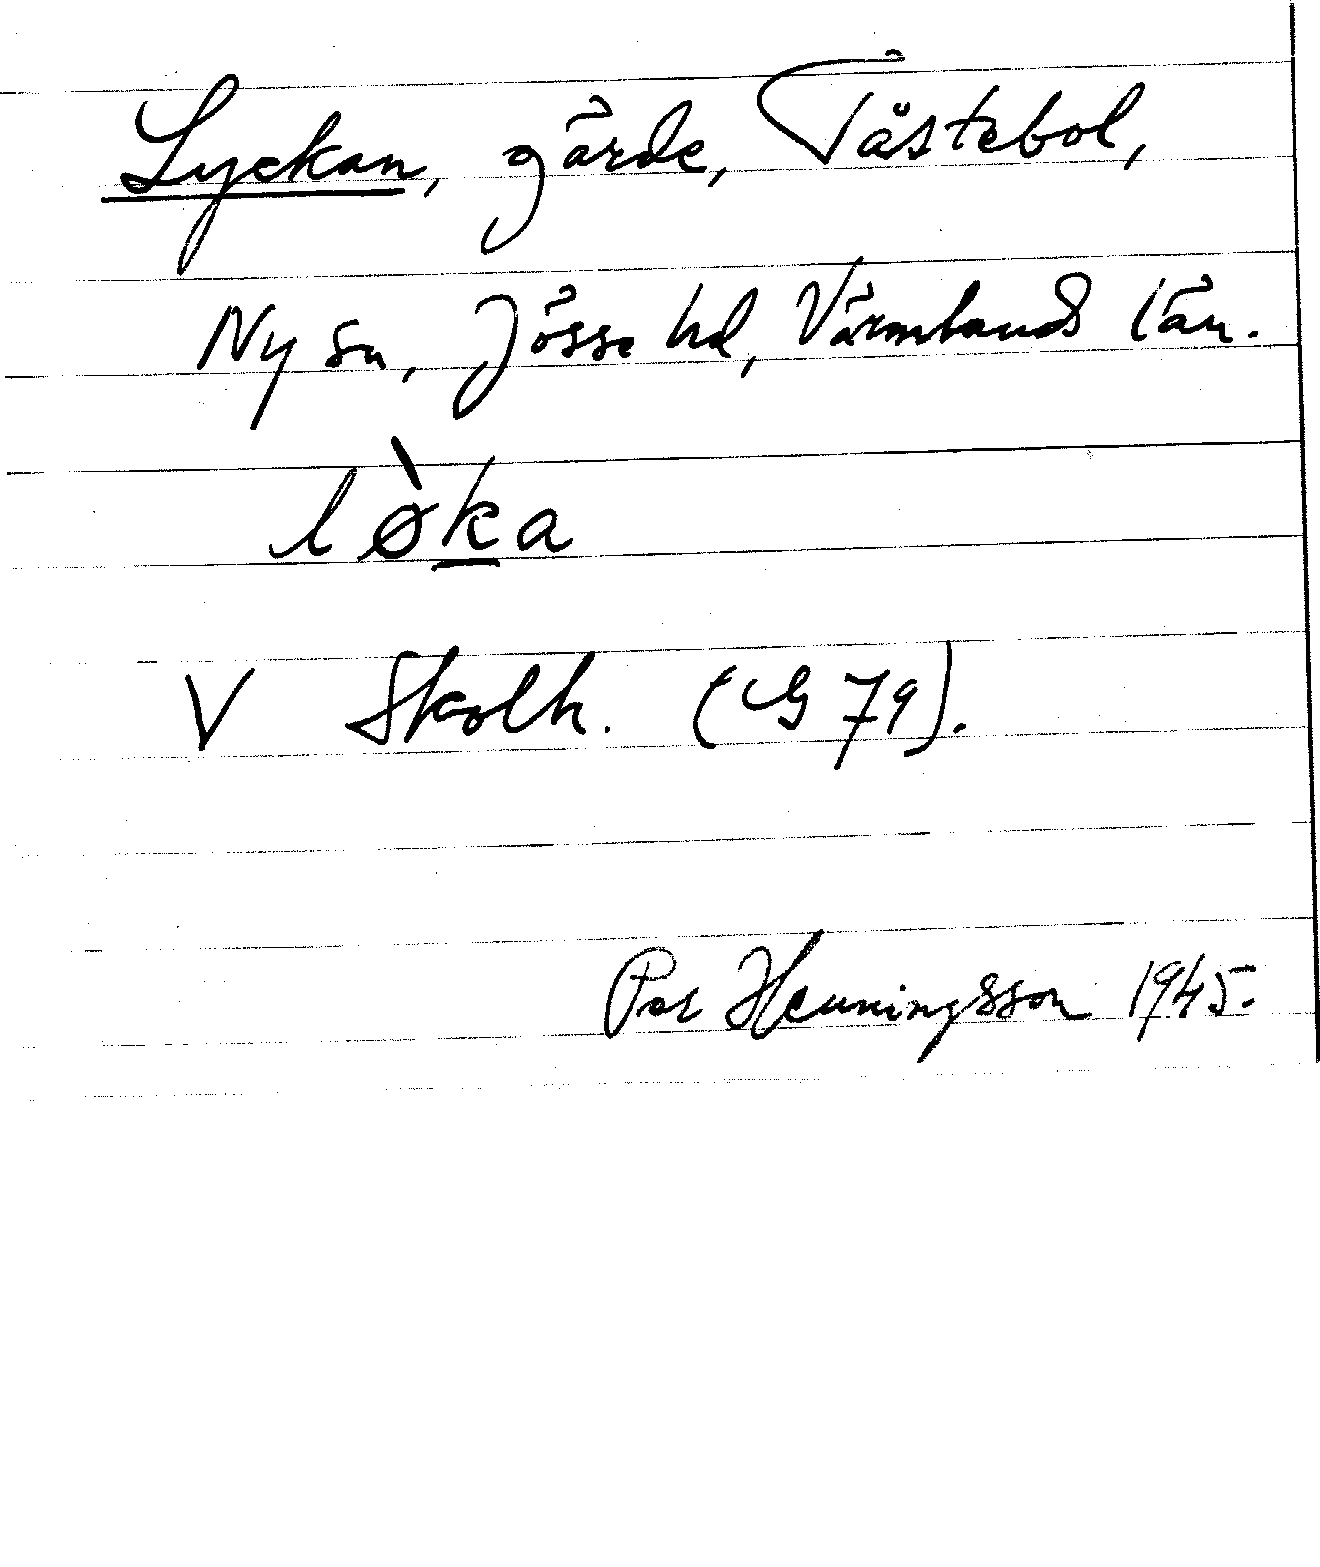 Lyckan, gärde, Tåstebol,
Ny sn, Jösse hd, Värmlands län.
lø̀ka
V Skolh. (G 79).
Per Henningsson 1945.